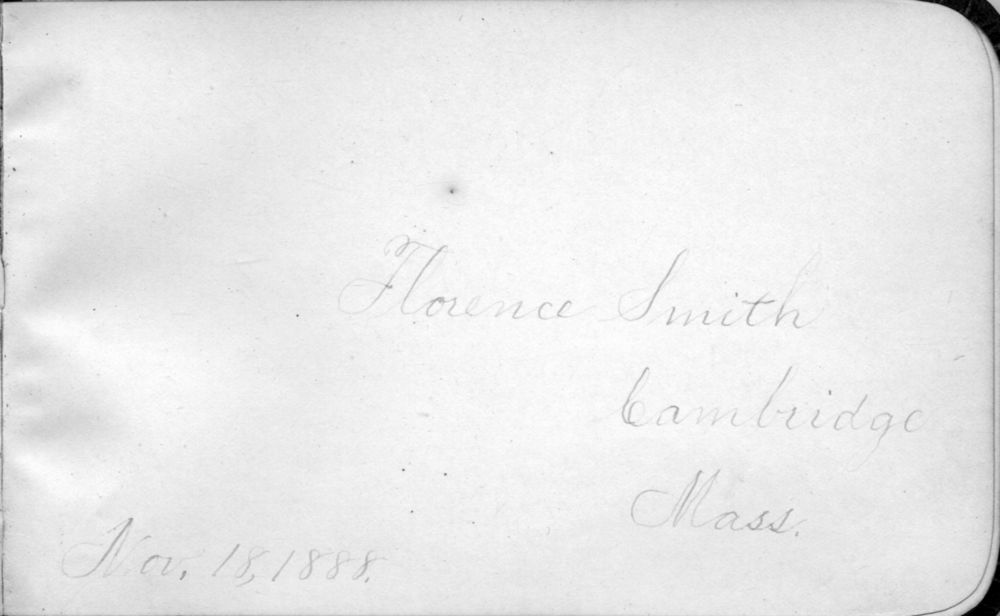 Florence Smith
Cambridge
Mass.
Nov. 18, 1888.